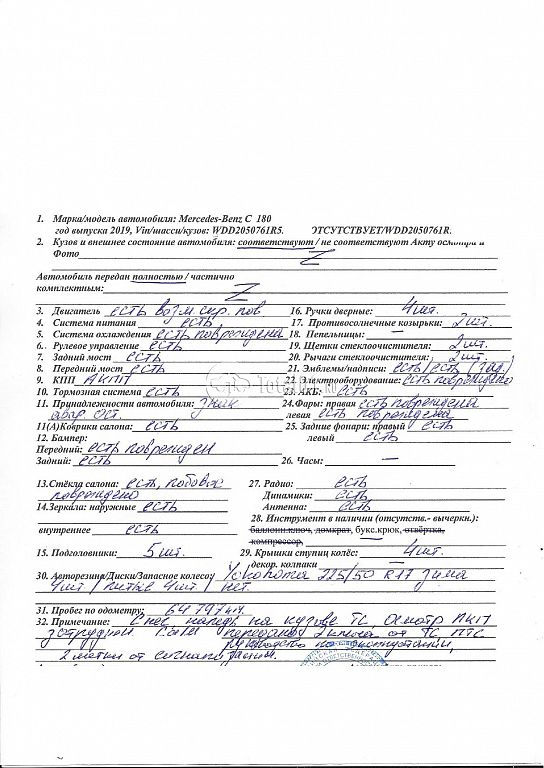 1. Марка/модель автомобиля: Mercedes-Benz C 180
год выпуска 2019, Vin/шасси/кузов: WDD2050761R5. ОТСУТСТВУЕТ/WDD2050761R.
2. Кузов и внешнее состояние автомобиля: соответствуют / не соответствуют Акту осмотра и
Фото Z
Автомобиль передан полностью / частично
комплектным: Z
3. Двигатель есть возм. скр. пов
4. Система питания есть
5. Система охлаждения есть повреждена
6. Рулевое управление есть
7. Задний мост есть
8. Передний мост есть
9. КПП АКПП
10. Тормозная система есть
11. Принадлежности автомобиля: знак
авар. ост.
11(А)Коврики салона: есть
12. Бампер:
Передний: есть поврежден
Задний: есть
13.Стёкла салона: есть, лобовое
повреждено
14.Зеркала: наружные есть
внутреннее есть
15. Подголовники: 5 шт.
16. Ручки дверные: 4 шт.
17. Противосолнечные козырьки: 2 шт.
18. Пепельницы: —
19. Щетки стеклоочистителя: 2 шт.
20. Рычаги стеклоочистителя: 2 шт.
21. Эмблемы/надписи: есть/есть (зад.)
22. Электрооборудование: есть повреждено
23. АКБ: есть
24.Фары: правая есть повреждена
левая есть повреждена
25. Задние фонари: правый есть
левый есть
26. Часы: —
27. Радио: есть
Динамики: есть
Антенна: есть
28. Инструмент в наличии (отсутств.- вычеркн.):
баллонн.ключ, домкрат, букс.крюк, отвёртка,
компрессор,
29. Крышки ступиц колёс: 4 шт.
декор. колпаки —
30. Авторезина/Диски/Запасное колесо: Yokohama 225/50 R17 зима
4 шт / литые 4 шт / нет.
31. Пробег по одометру: 64797 км.
32. Примечание: Снег, наледь на кузове ТС, осмотр ЛКП
затруднен. переданы 2 ключа от ТС, ПТС
руководство по эксплуатации,
2 метки от сигнализации.